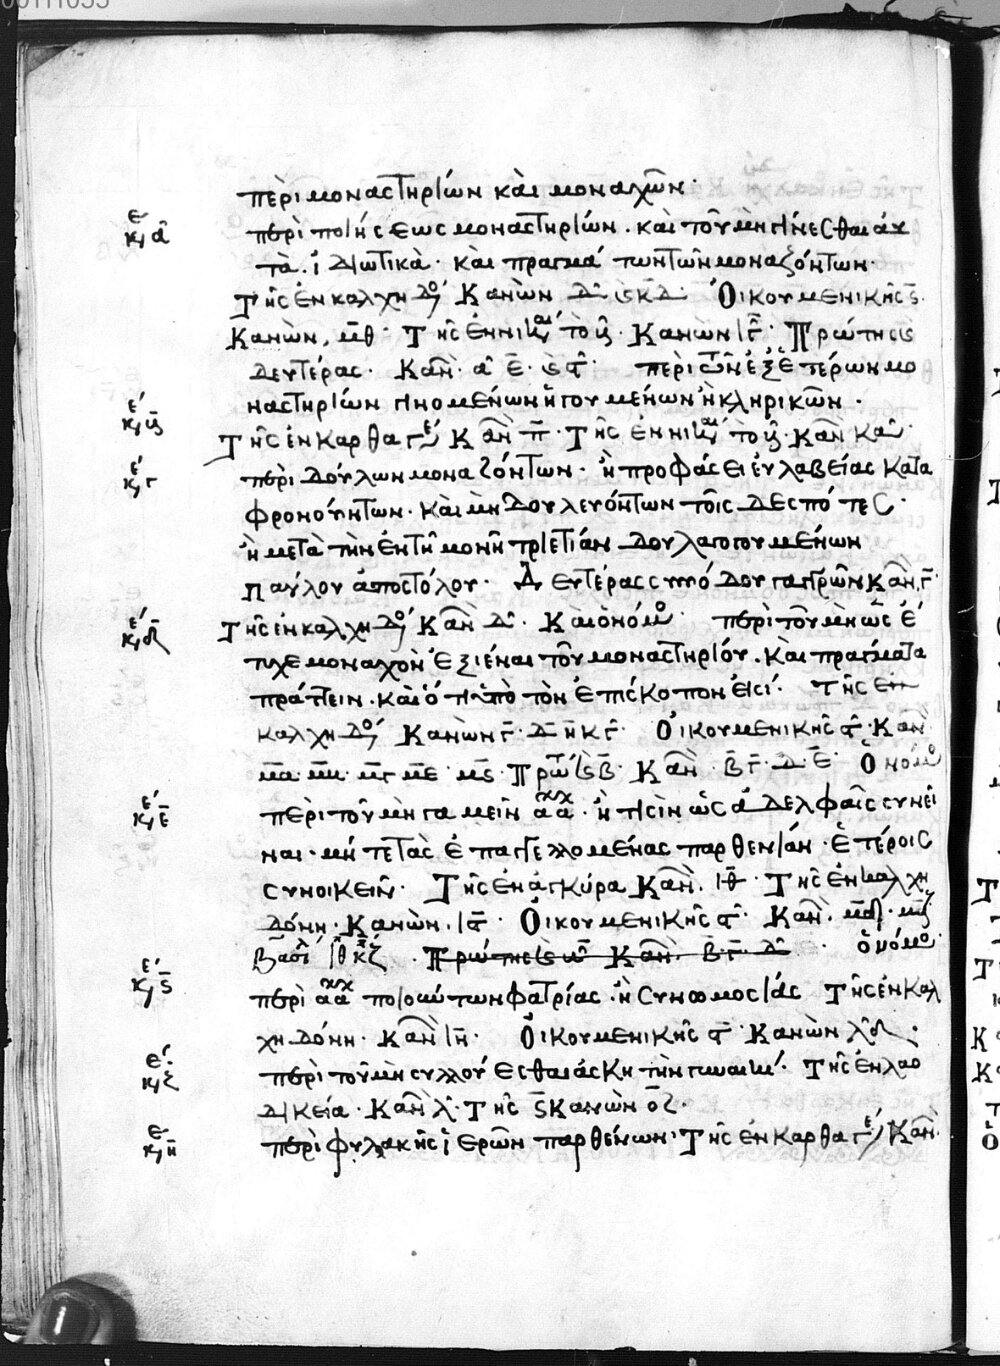 περὶ μοναστηρίων καὶ μοναχῶν·
κε α περὶ ποιήσεως μοναστηρίων. καὶ τοῦ μὴ γίνεσθαι αὐ
τὰ ἰδιωτικὰ· καὶ πραγμά των τῶν μοναζόντων·
Τῆς ἐν καλχηδο Κανὼν δ κδ Οἰκουμενικῆς ς
Κανὼν μθ· Τῆς ἐν νικαι τὸ Κανὼν ιγ Πρώτης
δευτέρας· Καν α ε ζ· περὶ τῶν ἐξ ἑτέρων μο
ναστηρίων γινομένων ἡγουμένων ἢ κληρικῶν·
κε Τῆς ἐν Καρθαγε Καν π· Τῆς ἐν νικαι τὸ Καν κα
κε γ περὶ δούλων μοναζόντων· ἢ προφάσει εὐλαβείας κατα
φρονούντων. καὶ μὴ δουλευόντων τοῖς δεσπό τες·
ἢ μετὰ τὴν ἐν τῆ μονῆ τριετίαν δουλαγογουμένων
παύλου ἀποστόλου· Δευτέρας συνόδου γαγγρῶν Καν γ
κε δ Τῆς ἐν καλχηδο Καν δ· Καὶ ὁ νόμο περὶ τοῦ μὴ ὡς ἔ
τυχε μοναχὸν ἐξιέναι τοῦ μοναστηρίου. καὶ πραγματα
πράττειν. καὶ ὅτι ὑπὸ τὸν ἐπίσκοπον εἰσί· τῆς ἐν
καλχηδο Κανὼν γ· δ η κγ· Οἰκουμενικῆς ς· Καν
μα μβ μγ με μς Πρω β· Καν· β γ· δ· ε· Ὁ νόμο
κε ε περὶ τοῦ μὴ γαμεῖν αα· ἢ τισὶν ὡς ἀδελφαῖς συνεῖ
ναι· μή τε τὰς ἐπαγγελλομένας παρθενίαν· ἑτέροις
συνοικεῖν· Τῆς ἐν ἀγκύρα Καν. ιθ· Τῆς ἐν καλχη
δόνη· Κανὼν. ις· Οἰκουμενικῆς ς· Καν. μδ· μζ
βασι ιθ κζ· Πρώτης Καν· β· γ· δ· ὁ νόμο
κε ς περὶ αα ποιούντων φατρίας· ἢ συνωμοσίας Τῆς ἐν Καλ
χηδόνη· Καν ιη· Οἰκουμενικῆς ς· Κανὼν λδ·
κε ζ περὶ τοῦ μὴ συλλούεσθαι ἀσκητὴν γυναικί· Τῆς ἐν λαο
δικεία· Καν λ· Τῆς ς Κανὼν οζ·
κε η περὶ φυλακῆς ἱερῶν παρθένων· Τῆς ἐν Καρθαγε Καν